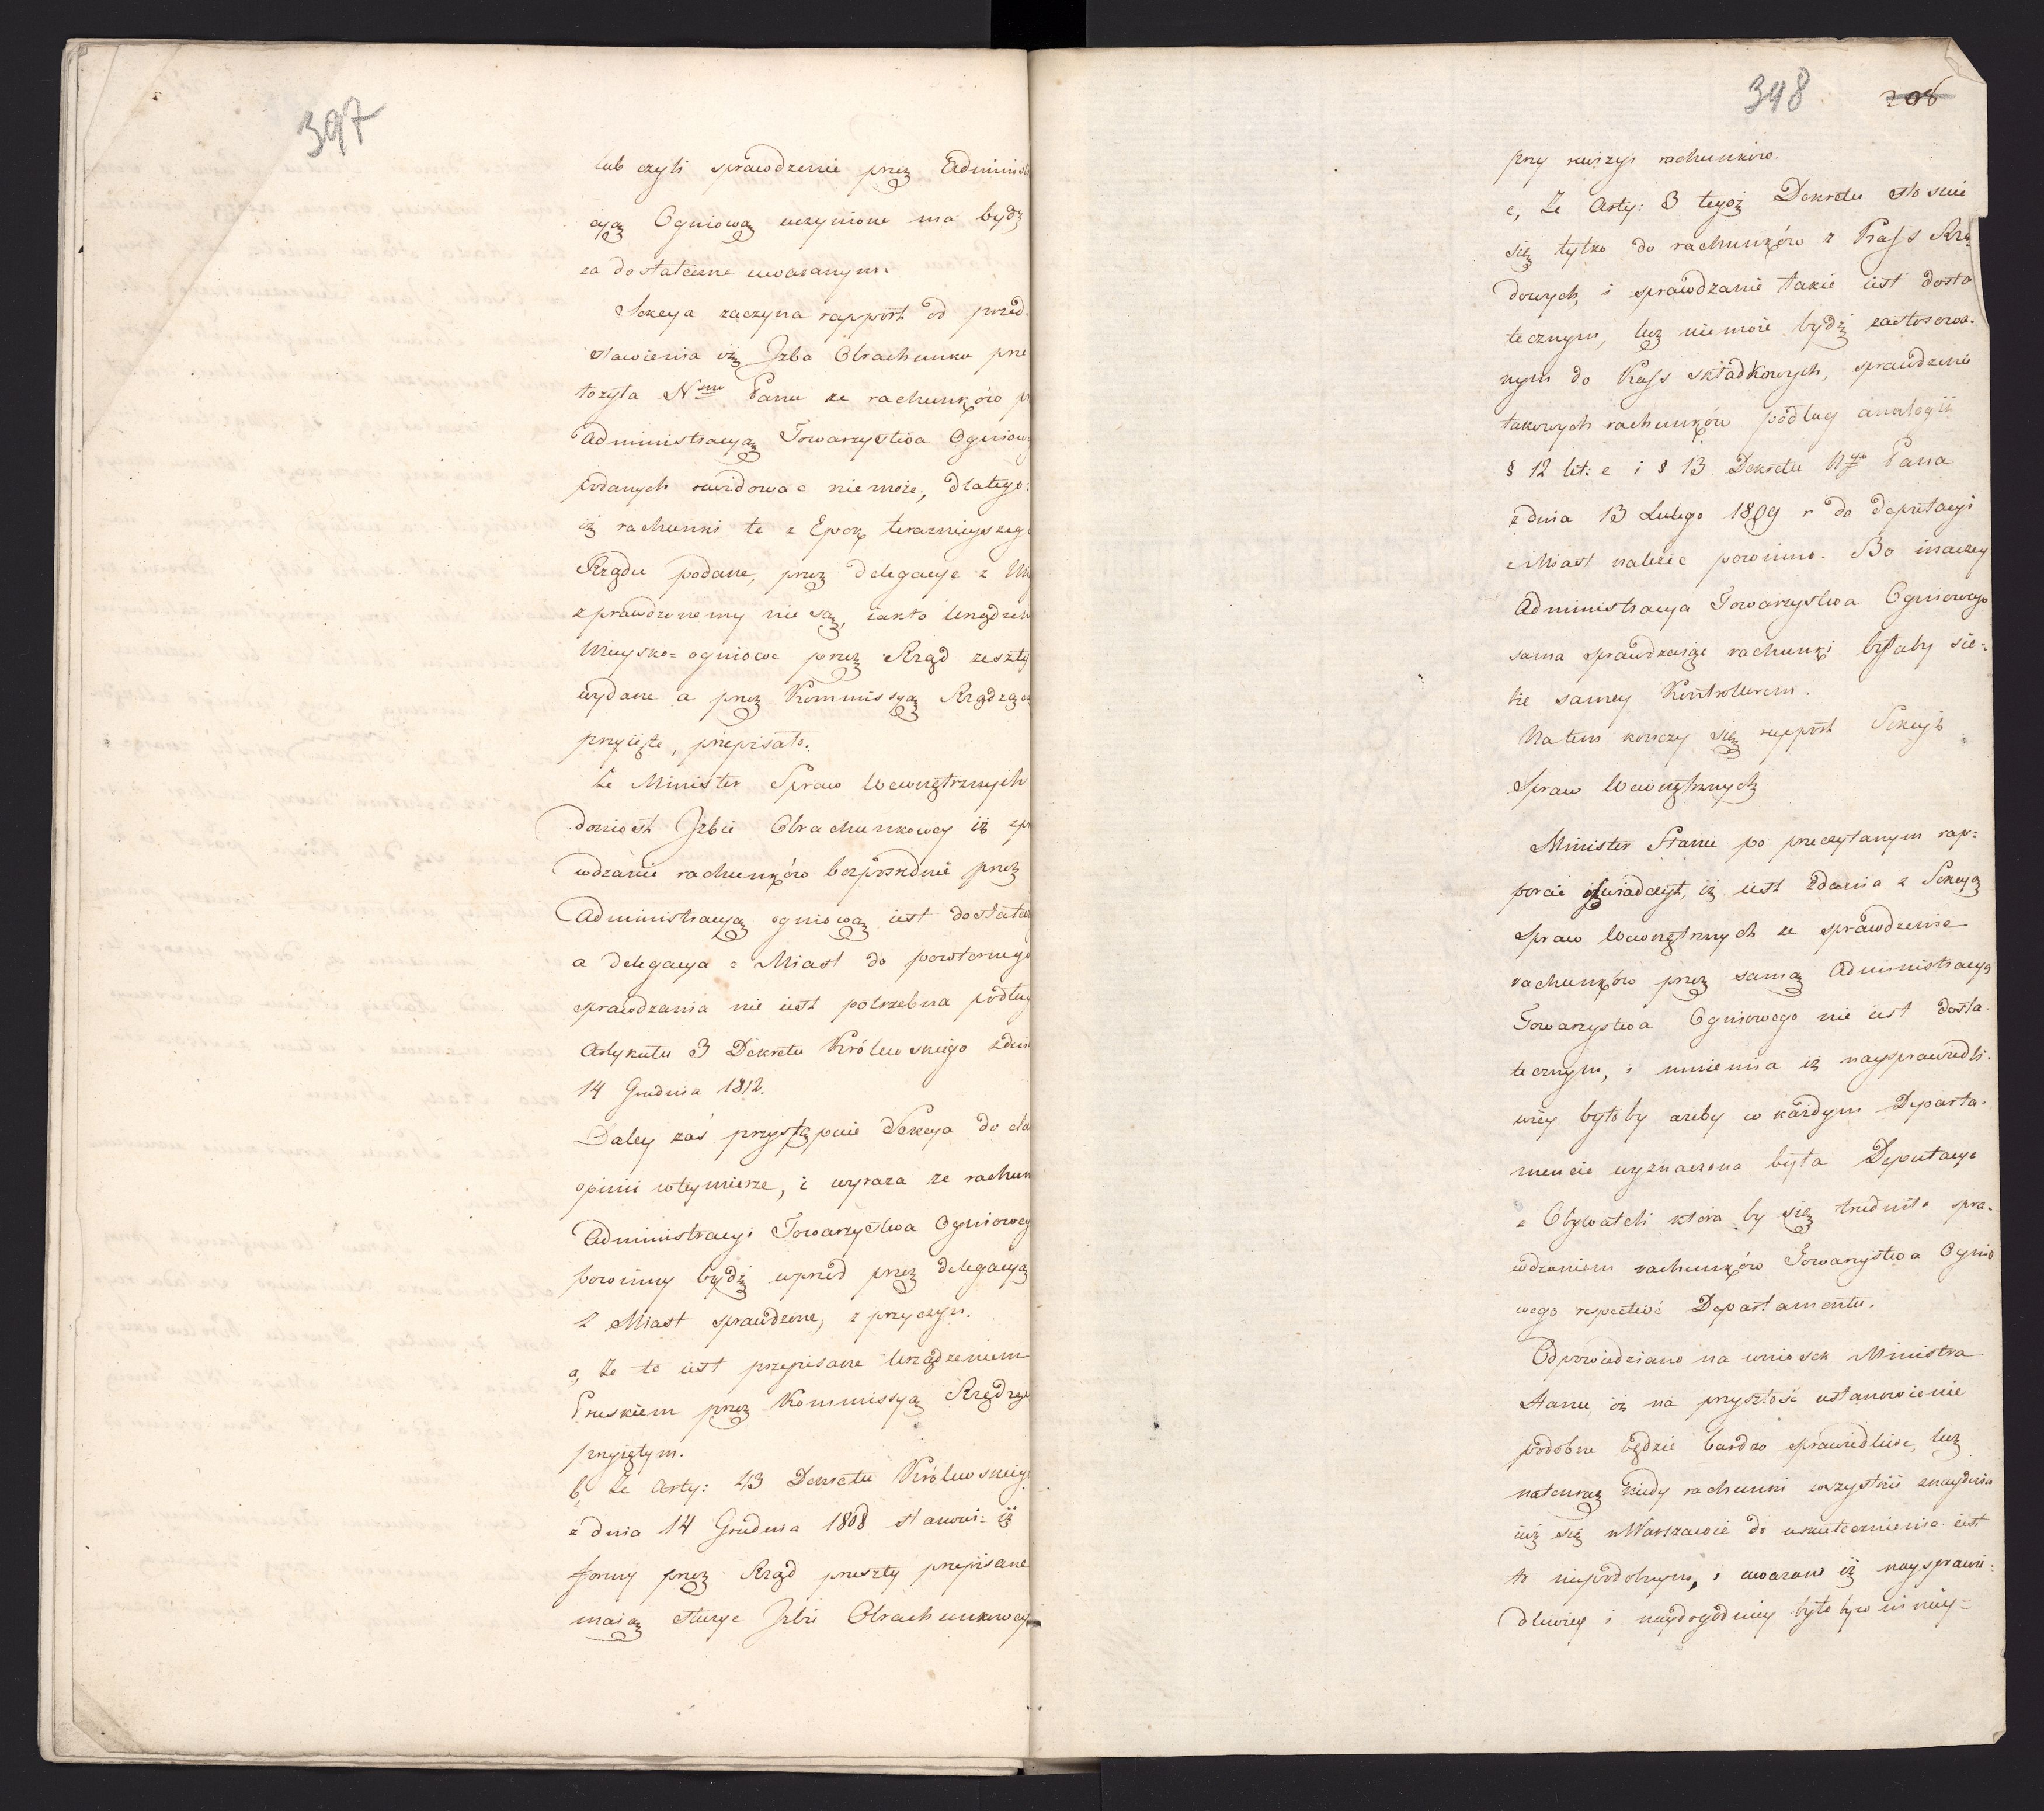 397
lub czyli sprawdzenie przez Administ
cyą Ogniową uczynione ma bydź
za dostateczne uwazanym.
Sekcya zaczyna rapport od przed
stawienia iż Jzba Obrachunku prze
łozyła Nmu Panu że rachunków p
Administracyą Towarzystwa Ogniow
podanych rewidowac niemoże, dlatego
iż rachunki te z Epok terazniejszeg
Rządu podane, przez delegacye z
sprawdzonemy nie są, iakto Urządzen
Mieysko=ogniowe przez Rząd zeszły
wydane a przez Kommissyą Rządząc
przyięte, przepisało.
Że Minister Spraw Wewnętrznych
doniosł Jzbie Obrachunkowey iż spr
wdzanie rachunków bezpośrednie przez
Administracyą ogniową iest dostate
a delegacya z Miast do powtornego
sprawdzania nie iest potrzebna podług
Artykułu 3 Dekretu Królewskiego zdni
14 Grudnia 1812.
Daley zaś przystępuie Sekcya do da
opinii wteymierze, i wyraza że rachun
Administracyi Towarzystwa Ogniowey
powinny bydź wprzod przez delegacyą
z Miast sprawdzone, z przyczyn.
a, Że to iest przepisane Urządzeniem
Pruskiem przez Kommissyą Rządzą
przyiętym.
b, Że Arty: 43 Dekretu Królewskieg
z dnia 14 Grudnia 1808 stanowi: iż
formy przez Rząd przeszły przepisane
maią służyc Jzbie Obrachunkowey
398 208
przy rewizyi rachunków.
c, Że Arty: 3 tegoż Dekretu stosuie
się tylko do rachunków z Kass Rzą
dowych, i sprawdzanie takie iest dosta
tecznym, lecz niemoże bydź zastosowa-
nym do Kass składkowych, sprawdzenie
takowych rachunków podług analogii
§ 12 lit: e i § 13 Dekretu Ngo Pana
z dnia 13 Lutego 1809 r do deputacyi
z Miast nalezic powinno. Bo inaczey
Administracya Towarzystwa Ogniowego
sama sprawdzaiąc rachunki byłaby sie=
bie samey Kontrollerem.
Natem konczy się rapport Sekcyi
Spraw Wewnętrznych
Minister Stanu po przeczytanym rap=
porcie oświadczył, iż iest zdania z Sekcyą
Spraw Wewnętrznych że sprawdzenie
rachunków przez samą Administracyą
Towarzystwa Ogniowego nie iest dosta-
tecznym, i mniema iż naysprawiedli-
wiey byłoby azeby w kazdym Departa-
mencie wyznaczona była Deputacya
z Obywateli która by się trudniła spra-
wdzaniem rachunków Towarzystwa Ognio
wego respective Departamentu.
Odpowiedziano na wniosek Ministra
Stanu iż na przyszłość ustanowienie
podobne będzie bardzo sprawiedliwe, lecz
natenraz kiedy rachunki wszystkie znayduia
iuż się wWarszawie do uskutecznienia iest
to niepodobnym, i uwazano iż nayspraw=
dliwiey i naydogodniey byłoby w ni